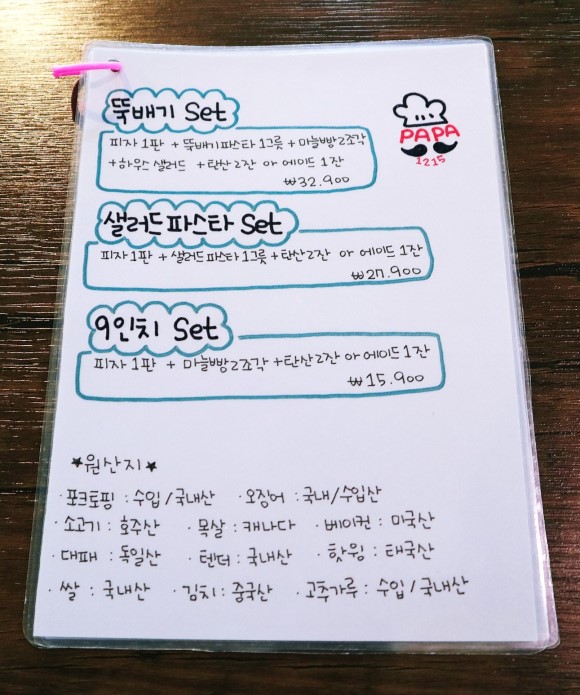 뚝배기 Set
PAPA
1215
피자 1판 + 뚝배기파스타 1그릇 + 마늘빵 2조각
+하우스 샐러드 +탄산 2잔 or 에이드 1잔
₩32.900
샐러드파스타 Set
피자 1판 + 샐러드파스타 1그릇 + 탄산 2잔 or 에이드 1잔
₩27.900
9인치 Set
피자 1판 + 마늘빵 2조각 +탄산 2잔 or 에이드 1잔
₩15.900
★원산지★
· 포크토핑 : 수입/국내산 · 오징어 : 국내/수입산
· 소고기 : 호주산 · 목살 : 캐나다 · 베이컨 : 미국산
· 대패 : 독일산 · 텐더 : 국내산 · 핫윙 : 태국산
· 쌀 : 국내산 · 김치 : 중국산 · 고추가루 : 수입/국내산